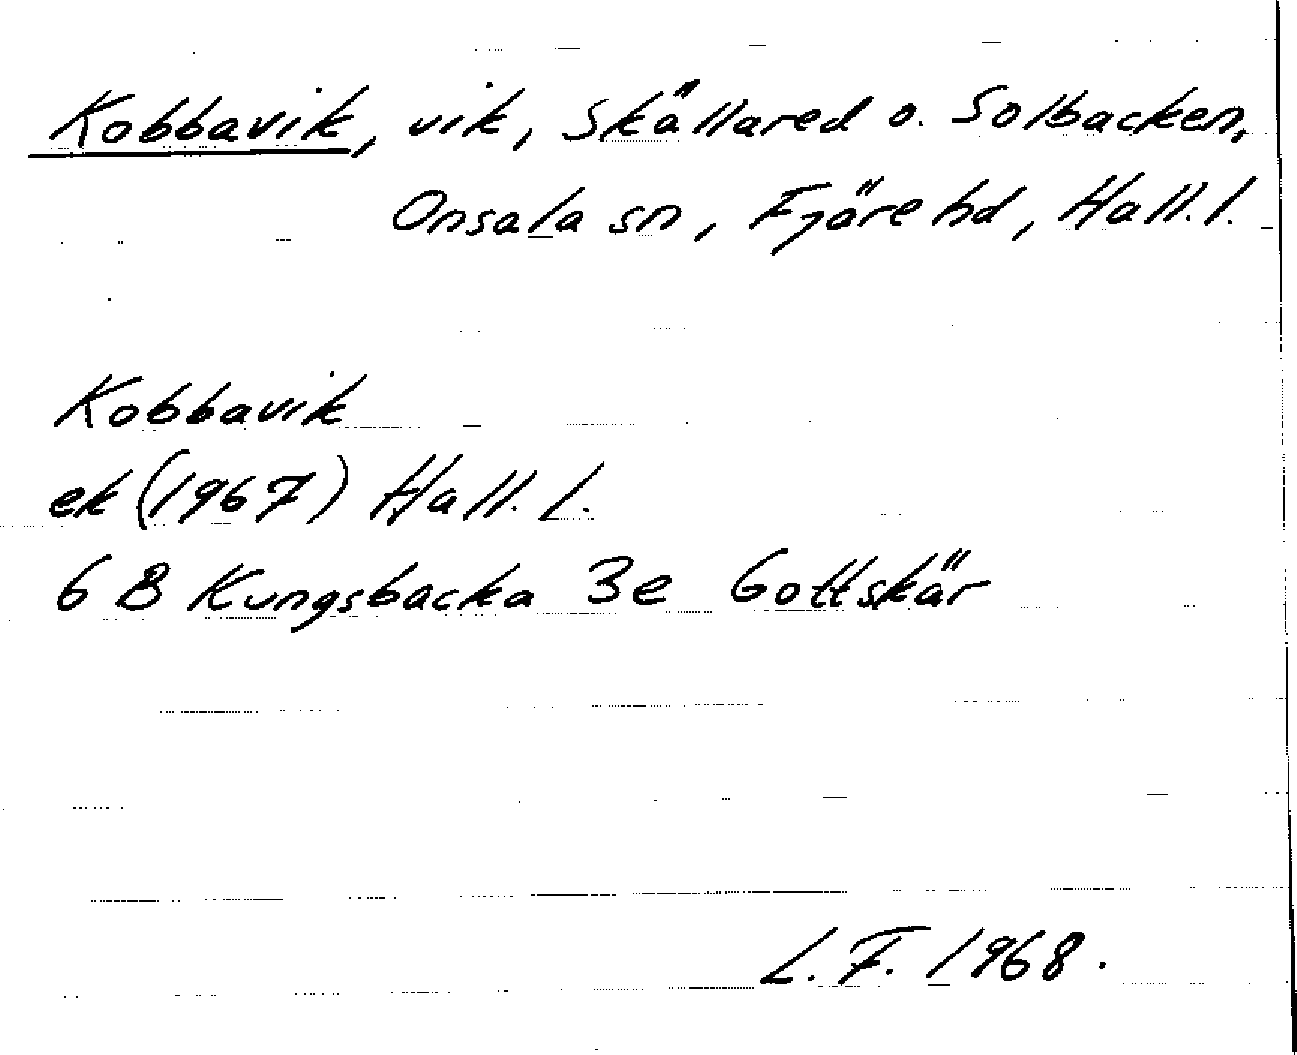 Kobbavik, vik, Skällared o. Solbacken,
Onsala sn, Fjäre hd, Hall. l.
Kobbavik
ek (1967) Hall. l.
6 B Kungsbacka 3e Gottskär
L. F. 1968.